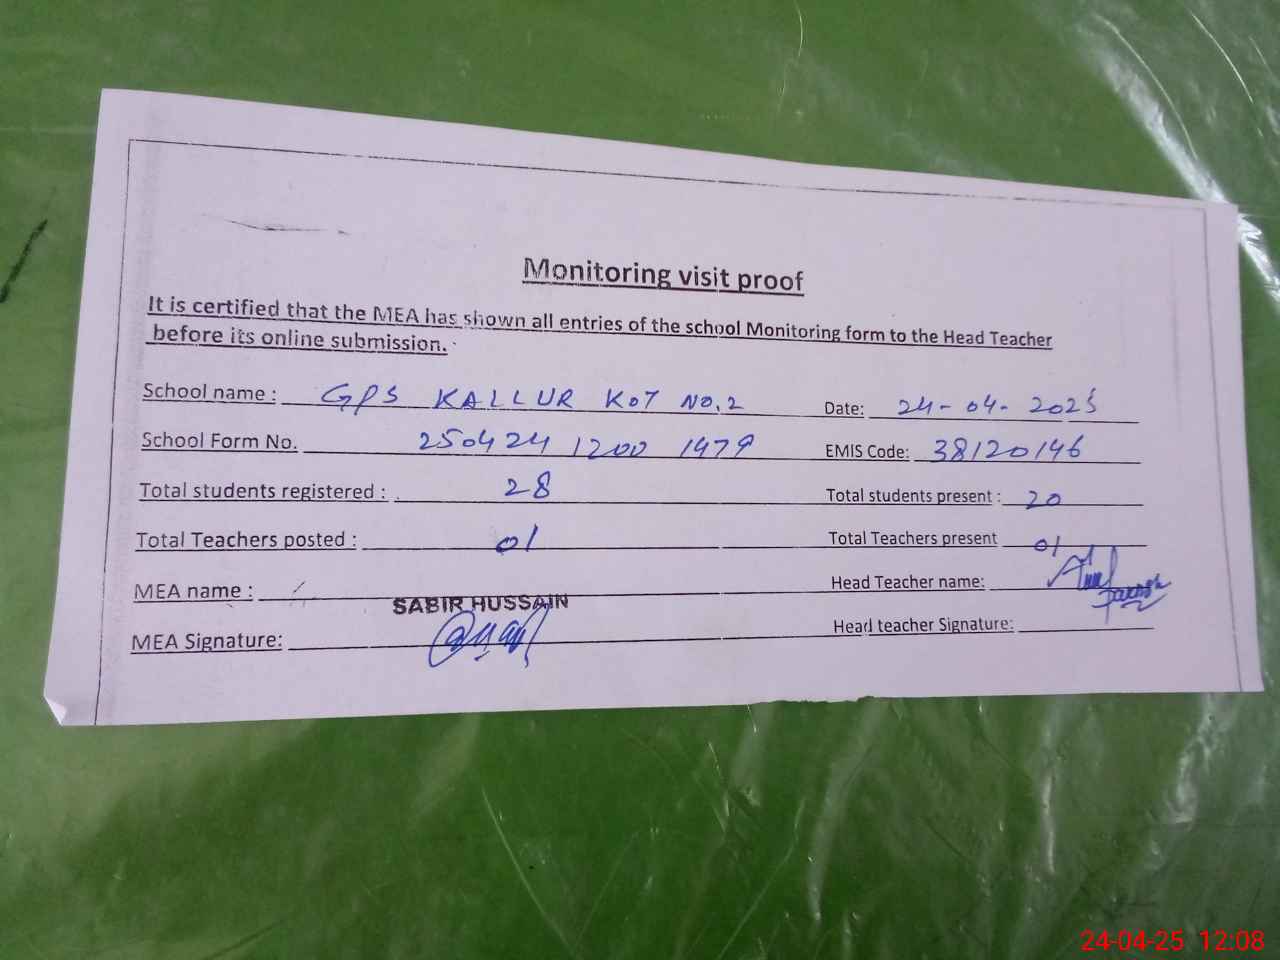 Monitoring visit proof
It is certified that the MEA has shown all entries of the school Monitoring form to the Head Teacher
before its online submission.
School name : GPS KALLUR KOT NO.2 Date: 24-04-2025
School Form No. 250424 1200 1479 EMIS Code: 38120146
Total students registered : 28 Total students present : 20
Total Teachers posted : 01 Total Teachers present 01
MEA name : SABIR HUSSAIN Head Teacher name:
MEA Signature: Head teacher Signature:
24-04-25 12:08